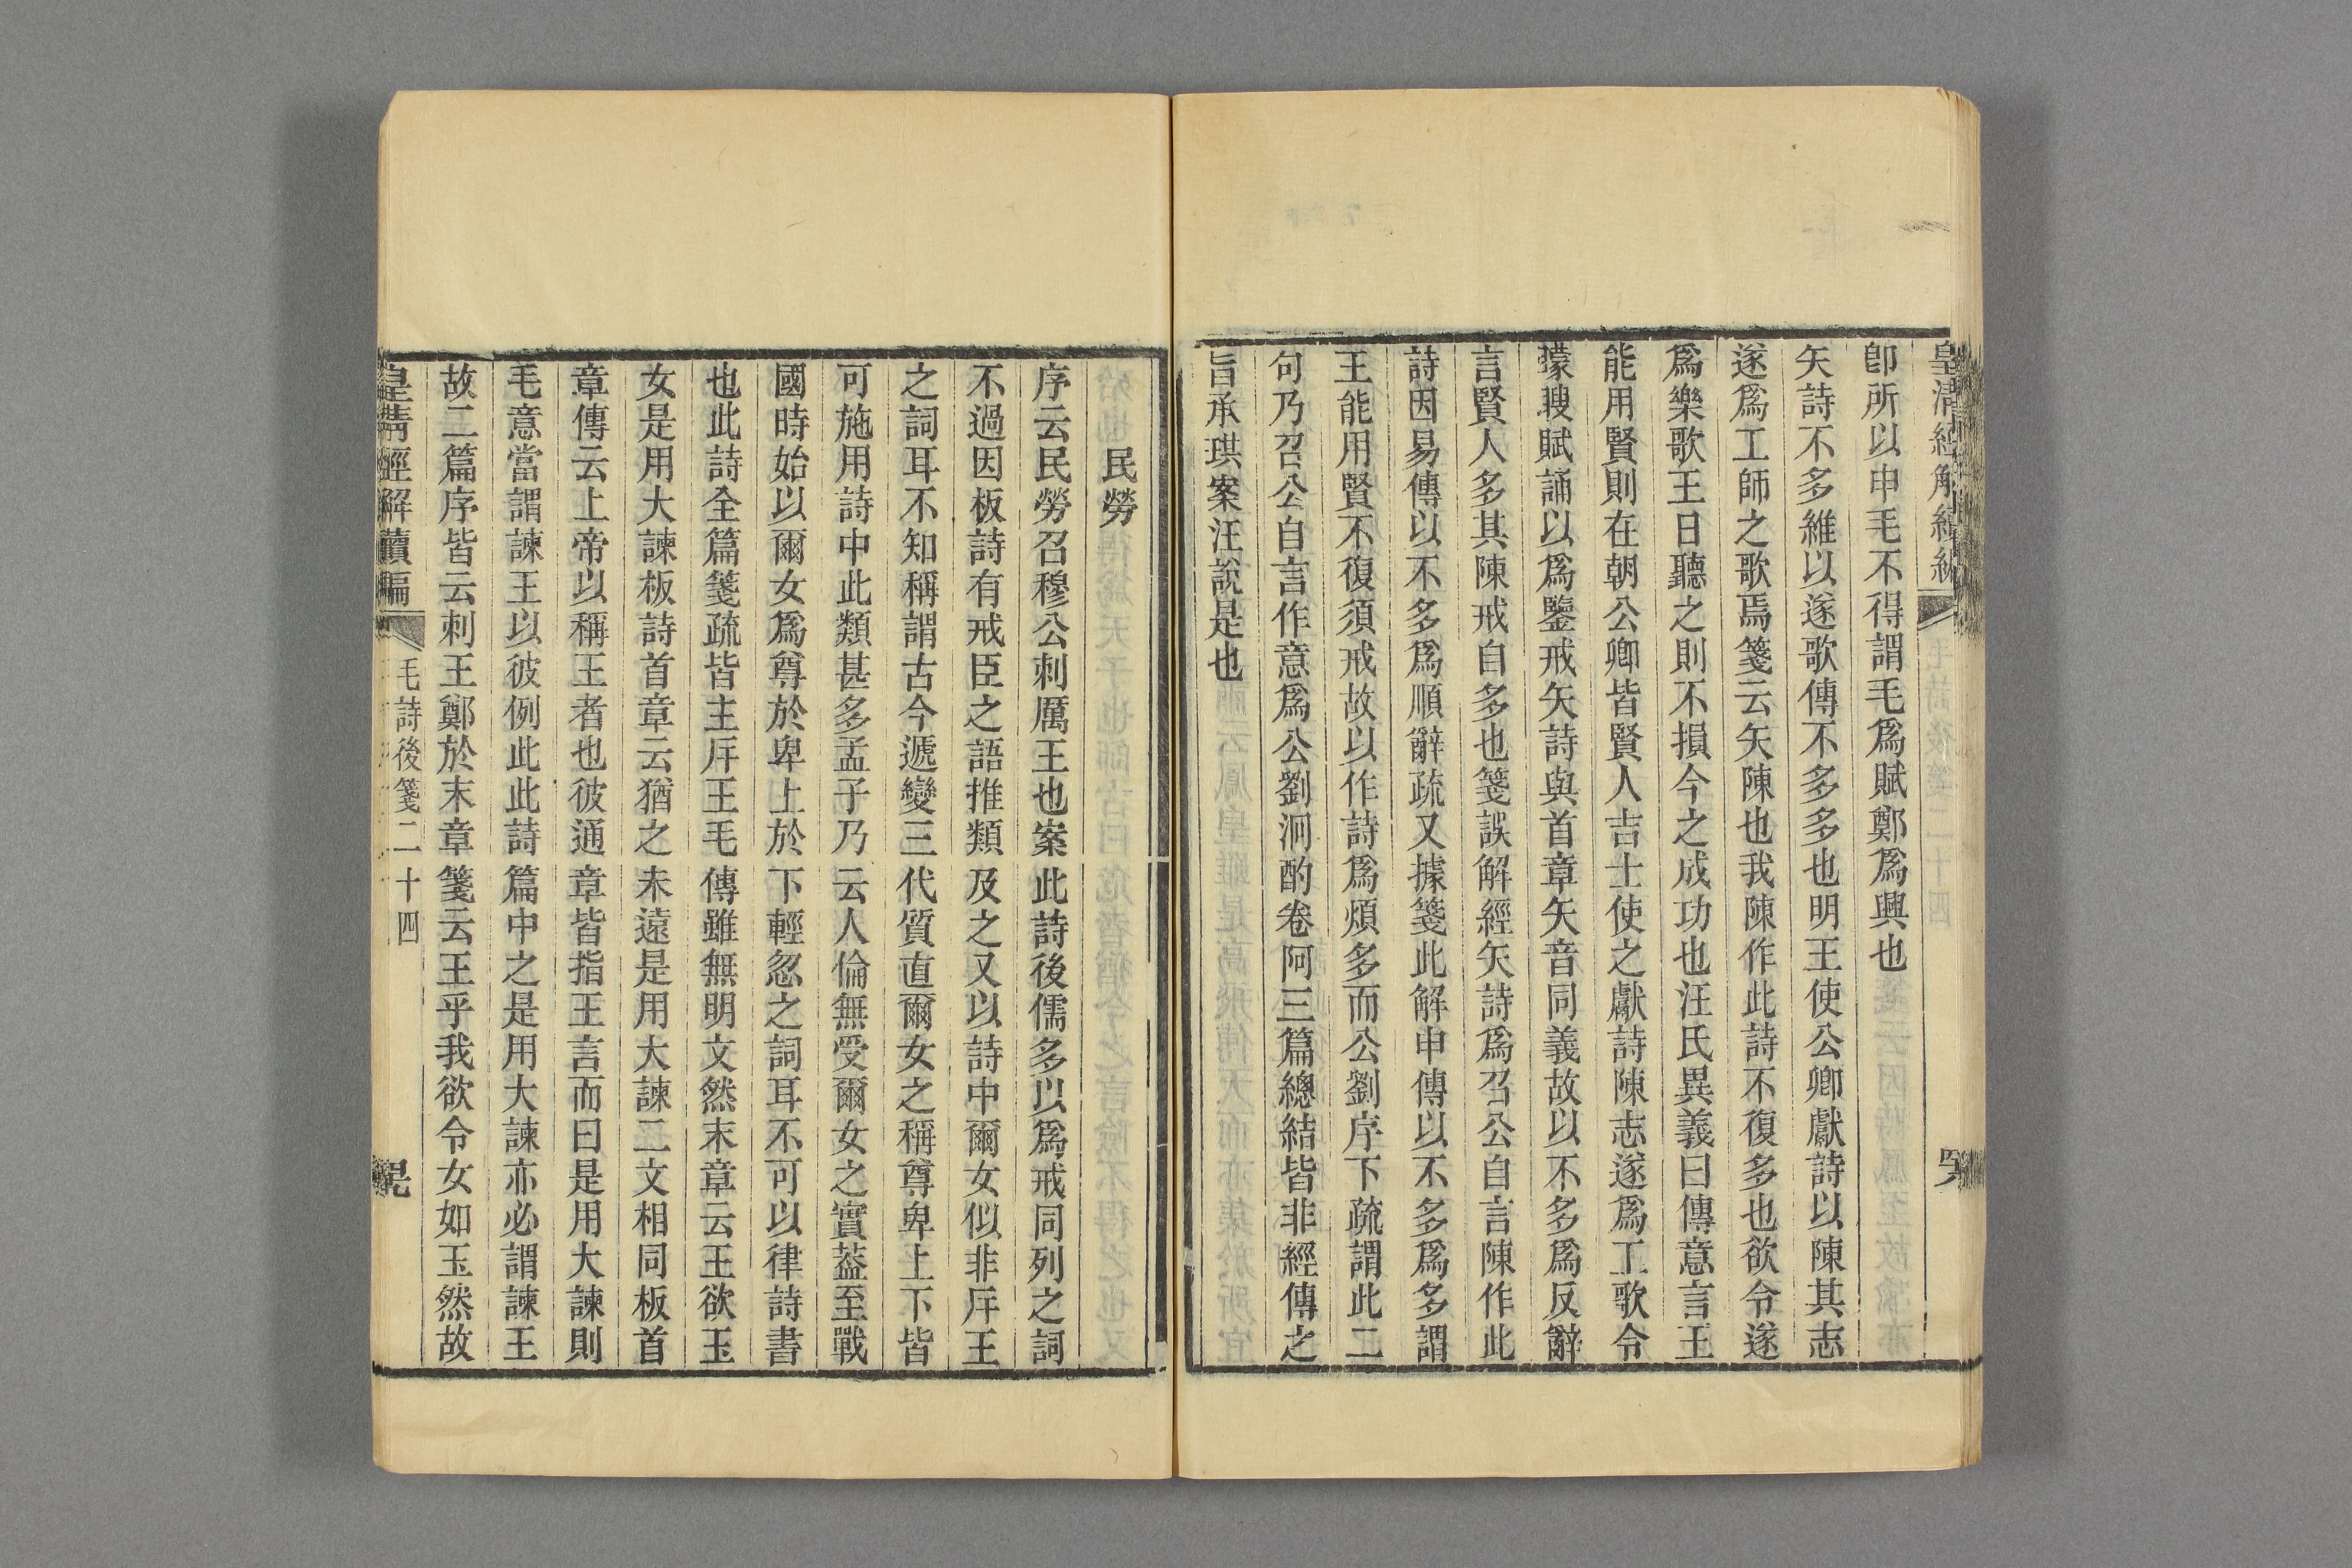 卽所以申毛不得謂毛爲賦鄭爲興也
矢詩不多維以遂歌傳不多多也明王使公卿獻詩以陳其志
遂爲工師之歌焉箋云矢陳也我陳作此詩不復多也欲令遂
爲樂歌王日聽之則不損今之成功也汪氏異義曰傳意言王
能用賢則在朝公卿皆賢人吉士使之獻詩陳志遂爲工歌令
矇瞍賦誦以爲鑒戒矢詩與首章矢音同義故以不多爲反辭
言賢人多其陳戒自多也箋誤解經矢詩爲召公自言陳作此
詩因易傳以不多爲順辭疏又據箋此解申傳以不多爲多謂
王能用賢不復須戒故以作詩爲煩多而公劉序下疏謂此二
句乃召公自言作意爲公劉泂酌卷阿三篇總結皆非經傳之
旨承珙案汪說是也
民勞
序云民勞召穆公刺厲王也案此詩後儒多以爲戒同列之詞
不過因板詩有戒臣之語推類及之又以詩中爾女似非斥王
之詞耳不知稱謂古今遞變三代質直爾女之稱尊卑上下皆
可施用詩中此類甚多孟子乃云人倫無受爾女之實葢至戰
國時始以爾女爲尊於卑上於下輕忽之詞耳不可以律詩書
也此詩全篇箋疏皆主斥王毛傳雖無明文然末章云王欲玉
女是用大諫板詩首章云猶之未遠是用大諫二文相同板首
章傳云上帝以稱王者也彼通章皆指王言而曰是用大諫則
毛意當謂諫王以彼例此此詩篇中之是用大諫亦必謂諫王
故二篇序皆云刺王鄭於末章箋云王乎我欲令女如玉然故
皇清經解續編
毛詩後箋二十四